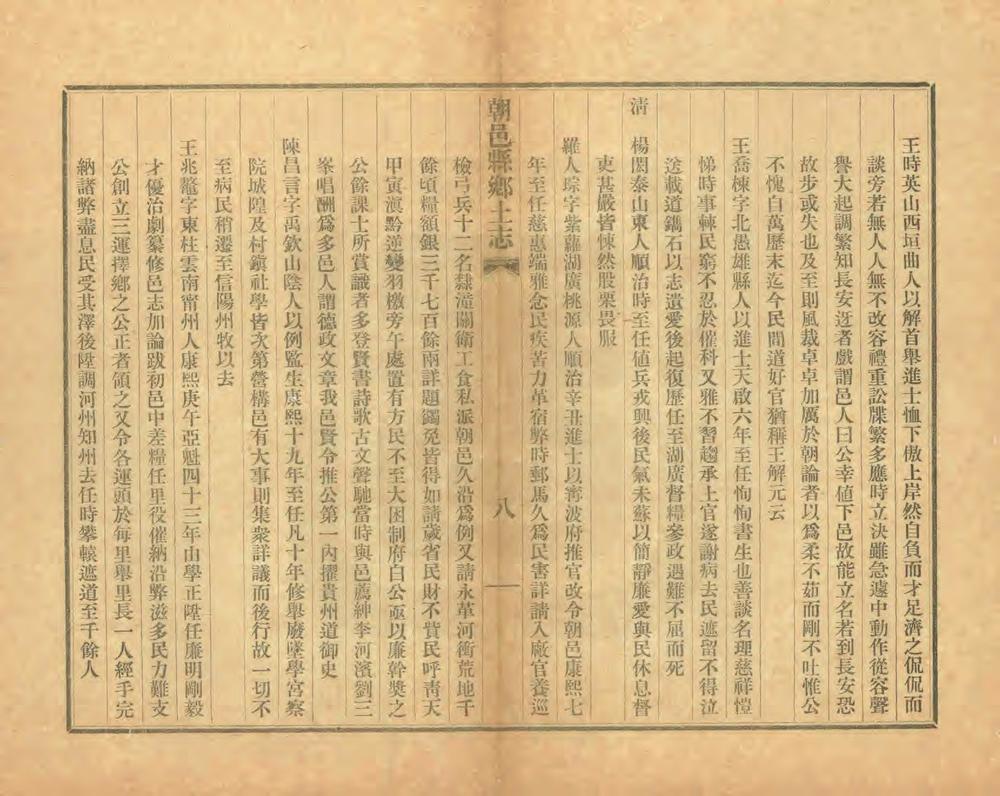 王時英山西垣曲人以解首舉進士恤下傲上岸然自負而才足濟之侃侃而
談旁若無人人無不改容禮重訟牒繁多應時立決雖急遽中動作從容聲
譽大起調繁知長安迓者戲謂邑人曰公幸値下邑故能立名若到長安恐
故步或失也及至則風裁卓卓加厲於朝論者以爲柔不茹而剛不吐惟公
不愧自萬歷末迄今民間道好官猶稱王解元云
王喬棟字北愚雄縣人以進士天啟六年至任恂恂書生也善談名理慈祥愷
悌時事棘民窮不忍於催科又雅不習趨承上官遂謝病去民遮留不得泣
送載道鐫石以志遺愛後起復歷任至湖廣督糧參政遇難不屈而死
淸 楊閎泰山東人順治時至任値兵戎興後民氣未蘇以簡靜廉愛與民休息督
吏甚嚴皆悚然股栗畏服
羅人琮字紫蘿湖廣桃源人順治辛丑進士以甯波府推官改令朝邑康熙七
年至任慈惠端雅念民疾苦力革宿弊時郵馬久爲民害詳請入廠官養巡
朝邑縣鄉土志
八
檢弓兵十二名隸潼關衛工食私派朝邑久沿爲例又請永革河衝荒地千
餘頃糧額銀三千七百餘兩詳題蠲免皆得如請歲省民財不貲民呼靑天
甲寅滇黔逆變羽檄旁午處置有方民不至大困制府白公亟以廉幹奬之
公餘課士所賞識者多登賢書詩歌古文聲馳當時與邑薦紳李河濱劉三
峯唱酬爲多邑人謂德政文章我邑賢令推公第一內擢貴州道御史
陳昌言字禹欽山陰人以例監生康熙十九年至任凡十年修舉廢墜學宮察
院城隍及村鎭社學皆次第營構邑有大事則集衆詳議而後行故一切不
至病民稍遷至信陽州牧以去
王兆鼇字東柱雲南甯州人康熙庚午亞魁四十三年由學正陞任廉明剛毅
才優治劇纂修邑志加論跋初邑中差糧任里役催納沿弊滋多民力難支
公創立三運擇鄉之公正者領之又令各運頭於每里舉里長一人經手完
納諸弊盡息民受其澤後陞調河州知州去任時攀轅遮道至千餘人